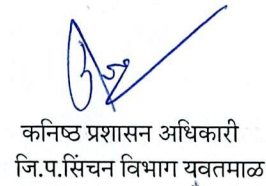 कनिष्ठ प्रशासन अधिकारी
जि.प.सिंचन विभाग यवतमाळ